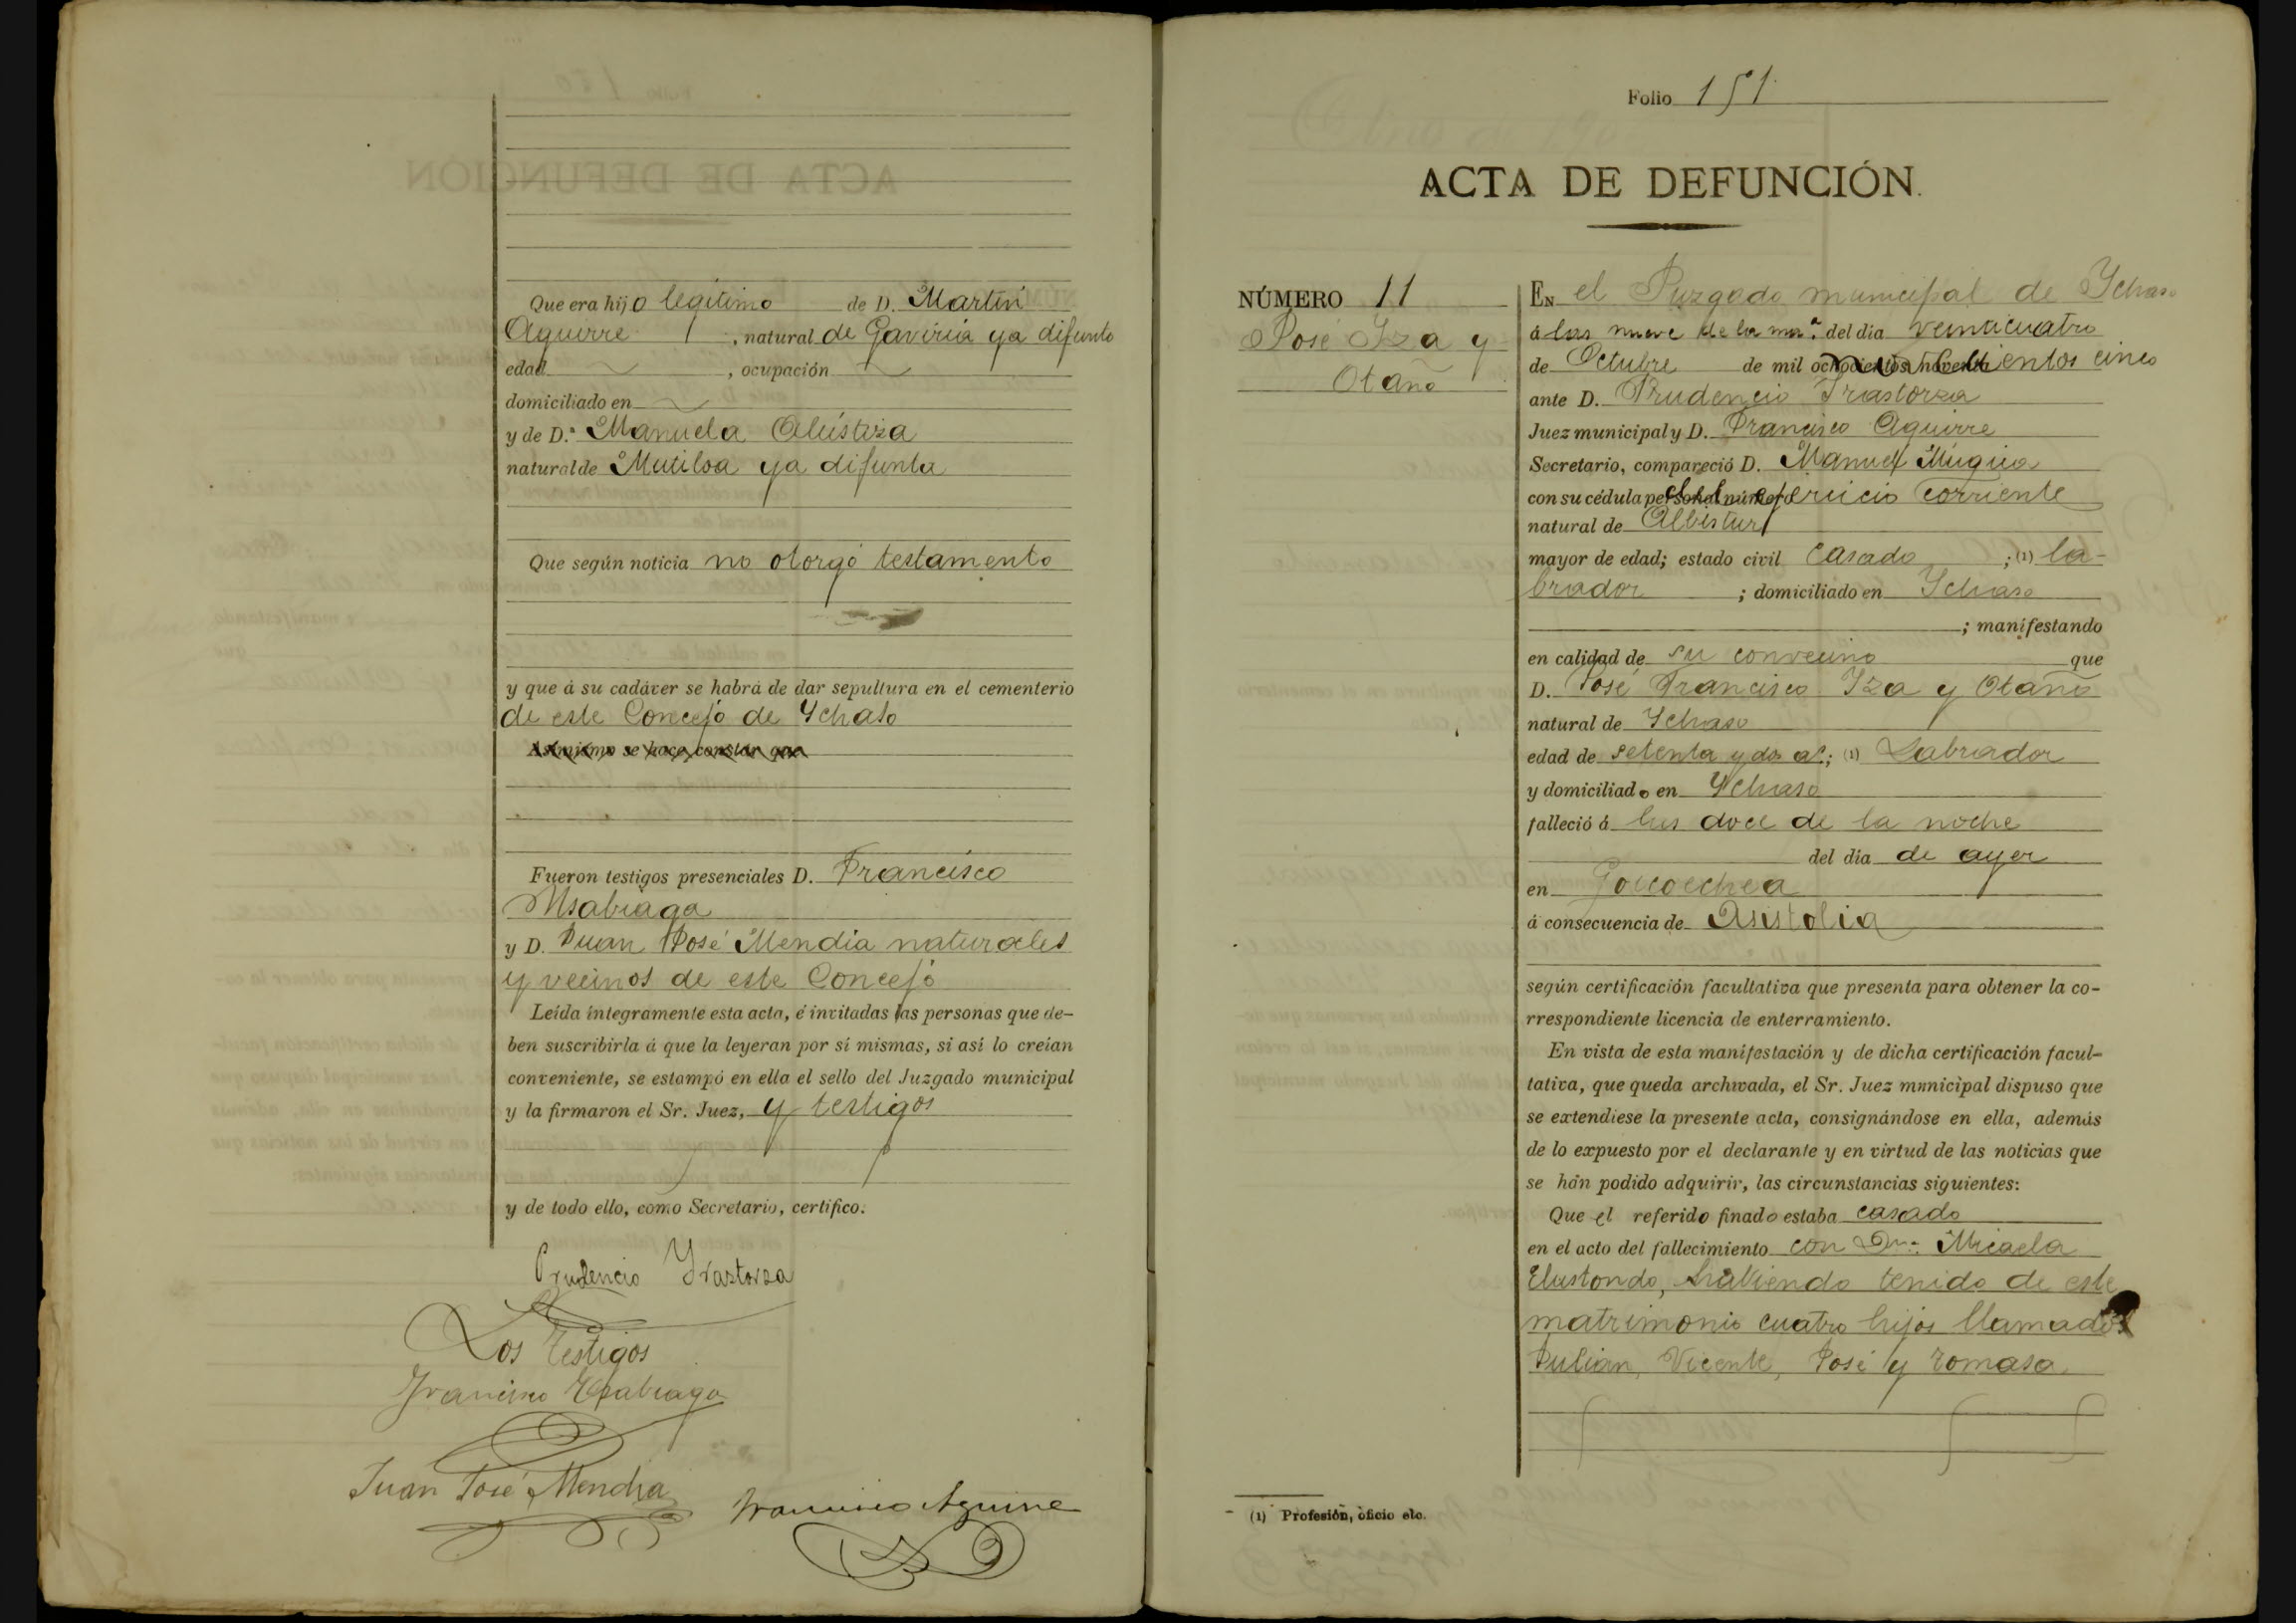 Que era hijo legítimo de D. Martín
Aguirre, natural de Gaviria ya difunto
edad , ocupación
domiciliado en
y de D.ª Manuela Alústiza
natural de Mutiloa ya difunta
Que según noticia no otorgó testamento
y que á su cadáver se habrá de dar sepultura en el cementerio
de este Concejo de Ychaso
Asimismo se hace constar que
Fueron testigos presenciales D. Francisco
Usabiaga
y D. Juan José Mendia naturales
y vecinos de este Concejo
Leída íntegramente esta acta, é invitadas las personas que de-
ben suscribirla á que la leyeran por sí mismas, si así lo creían
conveniente, se estampó en ella el sello del Juzgado municipal
y la firmaron el Sr. Juez, y testigos
y de todo ello, como Secretario, certifico.
Prudencio Yrastorza
Los Testigos
Francisco Usabiaga
Juan José Mendia
Francisco Aguirre
Folio 151
ACTA DE DEFUNCIÓN.
NÚMERO 11
José Yza y
Otaño
EN el Juzgado municipal de Ychaso
á las nueve de la mn.ª del día veinticuatro
de Octubre de mil novecientos cinco
ante D. Prudencio Yrastorza
Juez municipal y D. Francisco Aguirre
Secretario, compareció D. Manuel Múgica
con su cédula personal número del ejercicio corriente
natural de Albistur
mayor de edad; estado civil casado ; (1) la-
brador ; domiciliado en Ychaso
; manifestando
en calidad de su convecino que
D. José Francisco Yza y Otaño
natural de Ychaso
edad de setenta y dos a.s; (1) Labrador
y domiciliado en Ychaso
falleció á las doce de la noche
del día de ayer
en Goicoechea
á consecuencia de Asistolia
según certificación facultativa que presenta para obtener la co-
rrespondiente licencia de enterramiento.
En vista de esta manifestación y de dicha certificación facul-
tativa, que queda archivada, el Sr. Juez municipal dispuso que
se extendiese la presente acta, consignándose en ella, además
de lo expuesto por el declarante y en virtud de las noticias que
se han podido adquirir, las circunstancias siguientes:
Que el referido finado estaba casado
en el acto del fallecimiento con Dña. Micaela
Elustondo, habiendo tenido de este
matrimonio cuatro hijos llamados
Julián, Vicente, José y Tomasa
(1) Profesión, oficio etc.